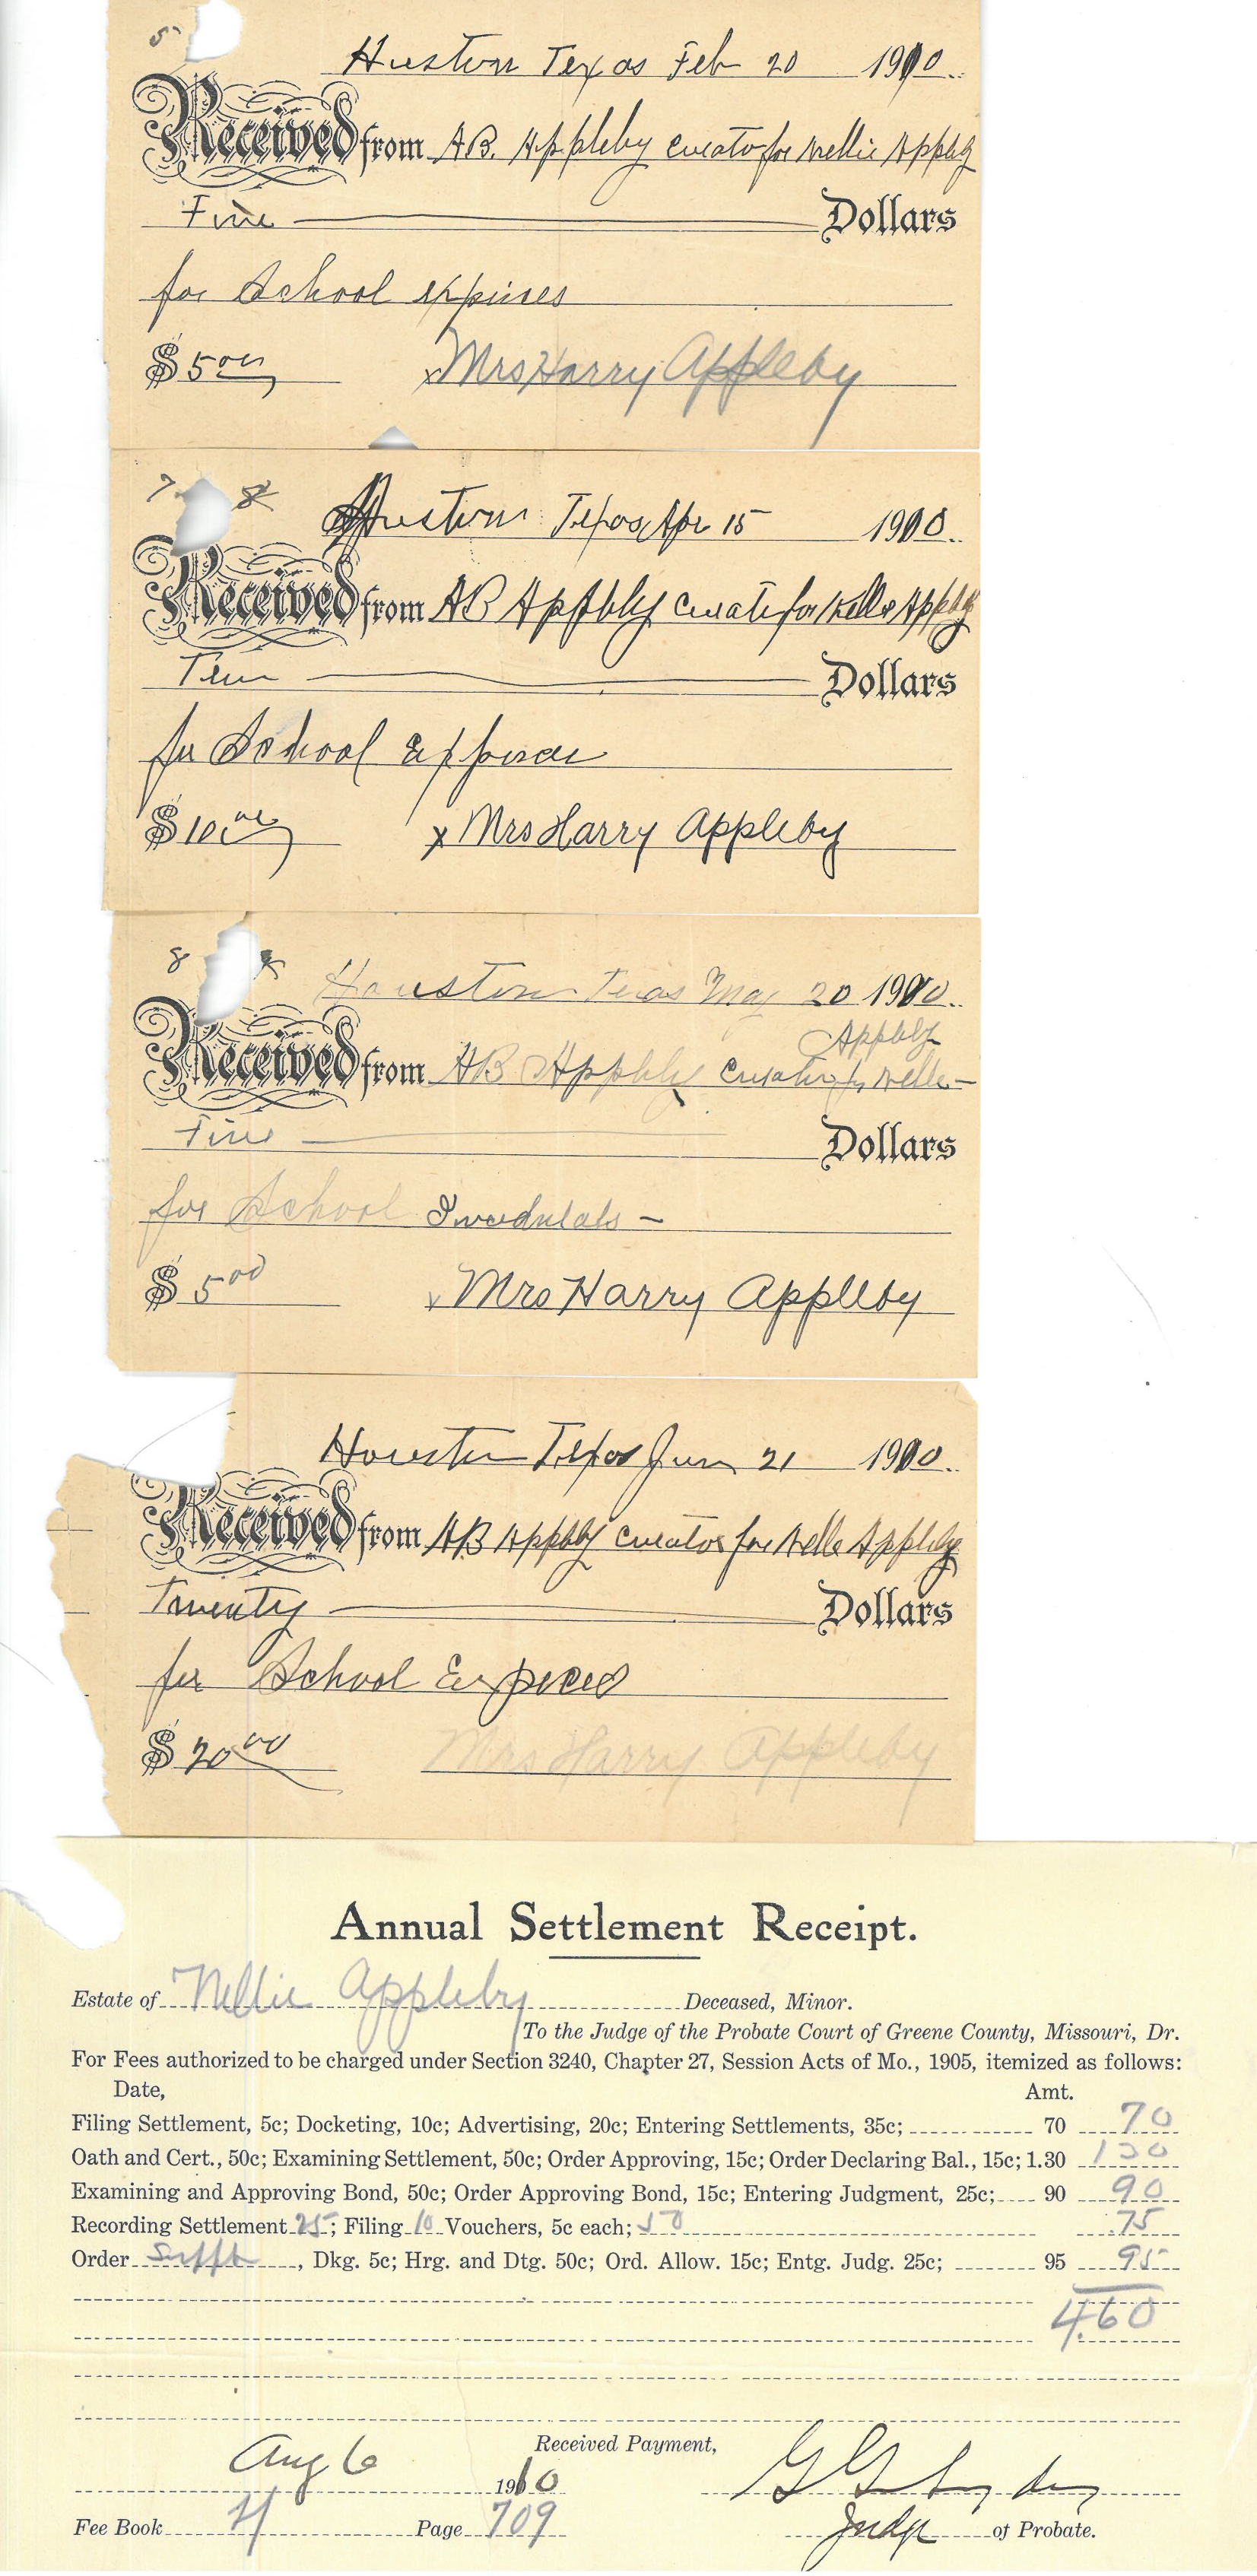 5
Huston Texas Feb 20 1910
Received from A.B. Appleby curator for Nellie Appleby
Five Dollars
for School expinses
$ 5 00
x Mrs Harry Appleby
7 8
Huston Texas Apr 15 1910
Received from AB Appleby curator for Nellie Appleby
Ten Dollars
for School Expenses
$ 10 00
x Mrs Harry Appleby
8
Houston Texas May 20 1910
Appleby
Received from AB Appleby Curator for Nellie -
Five Dollars
for School
$ 5 00
x Mrs Harry Appleby
Houston Texas Jun 21 1910
Received from AB Appleby curator for Nellie Appleby
Twenty Dollars
for School Expences
$ 20 00
Mrs Harry Appleby
Annual Settlement Receipt.
Estate of Nellie Appleby Deceased, Minor.
To the Judge of the Probate Court of Greene County, Missouri, Dr.
For Fees authorized to be charged under Section 3240, Chapter 27, Session Acts of Mo., 1905, itemized as follows:
Date, Amt.
Filing Settlement, 5c; Docketing, 10c; Advertising, 20c; Entering Settlements, 35c; 70 70
Oath and Cert., 50c; Examining Settlement, 50c; Order Approving, 15c; Order Declaring Bal., 15c; 1.30 130
Examining and Approving Bond, 50c; Order Approving Bond, 15c; Entering Judgment, 25c; 90 90
Recording Settlement 25; Filing 10 Vouchers, 5c each; 50 .75
Order , Dkg. 5c; Hrg. and Dtg. 50c; Ord. Allow. 15c; Entg. Judg. 25c; 95 95
4.60
Received Payment,
Aug 6 1910
Fee Book H Page 709
Judge of Probate.